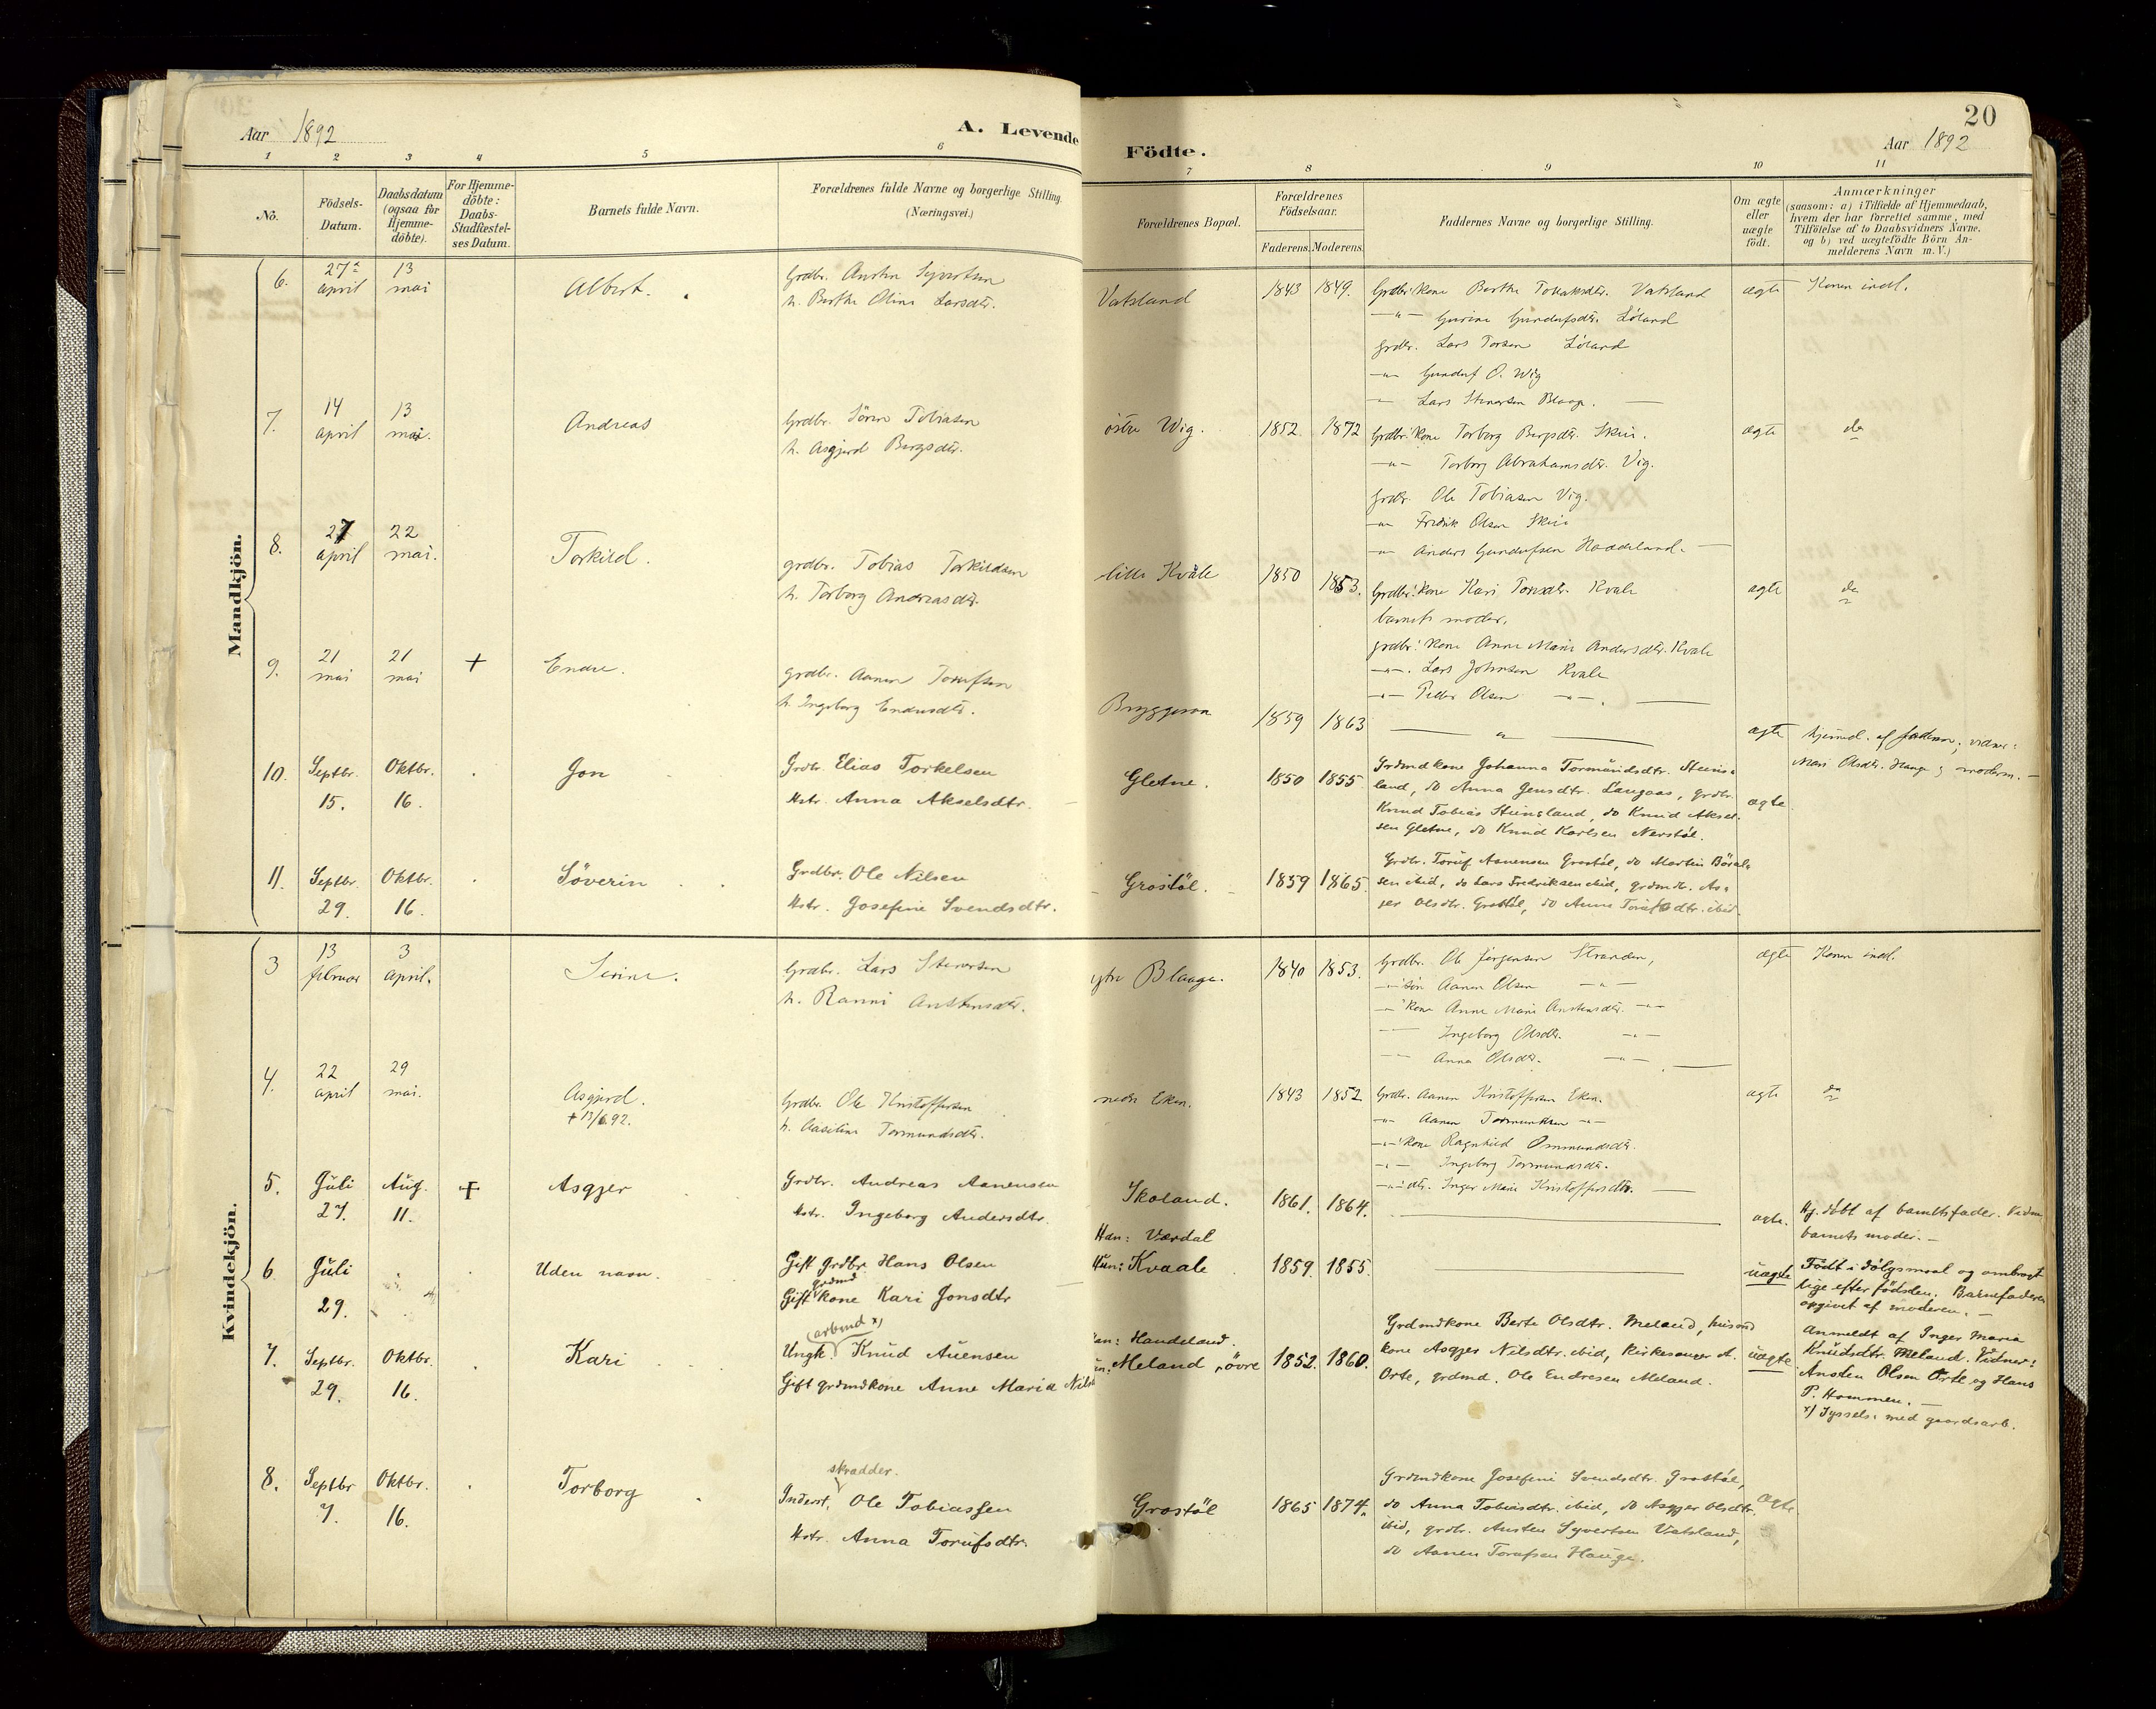 20
Aar 1892
A. Levende
Födte.
Aar 1892
1 2 3 4 5 6 7 8 9 10 11
No.
Födsels-
Datum.
Daabsdatum
(ogsaa for
Hjemme-
döbte).
For Hjemme-
döbte:
Daabs-
Stadfæstel-
ses Datum.
Barnets fulde Navn.
Forældrenes fulde Navne og borgerlige Stilling.
(Næringsvei.)
Forældrenes Bopæl.
Forældrenes
Födselsaar.
Faderens. Moderens.
Faddernes Navne og borgerlige Stilling.
Om ægte
eller
uægte
födt.
Anmærkninger
(saasom: a) i Tilfælde af Hjemmedaab,
hvem der har forrettet samme, med
Tilföielse af to Daabsvidners Navne.
og b) ved uægtefödte Börn An-
melderens Navn m. V.)
Mandkjön.
6.
27
april
13
mai
Albert.
Grdbr. Austen Syvertsen
h. Berthe Oline Larsdtr.
Vatsland
1843 1849.
Grdbr. kone Berthe Vatsland
Gurine Gundufsdtr. Löland
grdbr. Lars Löland
Gunduf O. Wig
Lars Blaage.
ægte
Konen indl.
7.
14
april
13
mai.
Andreas
Grdbr. Sören Tobiasen
h. Asgjerd Bergsdtr.
östre Wig.
1852 1872
Grdbr. kone Torborg Bergsdtr. Skeie.
Torborg Abrahamsdtr. Vig.
grdbr. Ole Tobiasen Vig.
Fredrik Olsen Skeie
Anders Gundufsen Haddeland.
ægte
do
8.
27
april
22
mai.
Torkild.
grdbr. Tobias Torkildsen
h. Torborg Andreasdtr.
lille Kvåle
1850 1853.
Grdbr. kone Kari Kvale
barnets moder.
grdbr. kone Anne Marie Andersdtr. Kvale
Lars Johnsen Kvale
Peder Olsen
ægte
do
9.
21
mai
21
mai
+
Endre.
grdbr. Aanen Torufsen
h. Ingeborg Endresdtr.
Bryggesaa
1859 1863
ægte
hjemmed. af faderen; vidner:
Mari Olsdtr. Hauge og moderen.
10.
Septbr.
15.
Oktbr.
16.
Jon
Grdbr. Elias Torkelsen
Hstr. Anna Akselsdtr.
Gletne.
1850 1855
Grdmdkone Johanna Tormundsdtr. Steins-
land, do Anna Jensdtr. Langaas, grdbr.
Knud Tobias Steinsland, do Knud Aksel-
sen Gletne, do Knud Karlsen Nerstöl.
ægte.
11.
Septbr.
29.
Oktbr.
16.
Söverin
Grdbr. Ole Nilsen
Hstr. Josefine Svendsdtr.
Grostöl.
1859 1865.
Grdbr. Toruf Aanensen Grostöl, do Martin
sen ibid, do Lars Fredriksen ibid, grdmdk. As-
jer Olsdtr. Grostöl, do Anne Torufsdtr. ibid.
Kvindekjön.
3
13
februar
3
april.
Serine.
Grdbr. Lars Stenersen
h. Ranni Austensdtr.
ytre Blaage.
1840 1853.
Grdbr. Ole Jörgensen Stranden,
sön Aanen Olsen
kone Anne Marie Austensdtr.
Ingeborg Olsdtr.
Anna Olsdtr.
ægte
Konen indl.
4.
22
april
29
mai.
Asgjerd.
+ 13/6 92.
Grdbr. Ole Kristoffersen
h. Aaseline Tormundsdtr.
nedre Eken.
1843 1852
Grdbr. Aanen Kristoffersen Eken.
Aanen Tormundsen
kone Ragnhild Ommundsdtr.
Ingeborg Tormundsdtr.
dtr. Inger Marie Kristoffersdtr.
ægte
do
5.
Juli
27.
Aug.
11.
+
Asgjer
Grdbr. Andreas Aanensen
Hstr. Ingeborg Andersdtr.
Skoland.
1861. 1864.
ægte.
Hj. döbt af barnetsfader. Vidne
barnets moder.
6
Juli
29.
Uden navn.
Gift Grdbr. Hans Olsen
Gift grdmd kone Kari Jonsdtr
Han: Værdal
Hun: Kvaale
1859. 1855.
uægte
Født i dölgsmaal og ombragt
lige efter födslen. Barnefaderen
opgivet af moderen.
7.
Septbr.
29.
Oktbr.
16.
Kari
(arbmd x)
Ungk. Knud Auensen
Gift grdmdkone Anne Maria Nils
Han: Haudeland.
Meland, övre
1852. 1860.
Grdmdkone Berte Olsdtr. Meland, husmd
kone Asgjer Nilsdtr. ibid, kirkesanger A.
Orte, grdmd. Ole Endresen Meland.
uægte
Anmeldt af Inger Maria
Knudsdtr. Meland. Vidner:
Austen Olsen Orte og Hans
P. Hommen.
x) Syssels. med gaardsarb.
8.
Septbr
7.
Oktbr.
16.
Torborg
skrædder.
Inderst, Ole Tobiassen
Hstr. Anna Torufsdtr.
Grostöl
1865 1874.
Grdmdkone Josefine Svendsdtr. Grostöl,
do Anna Tobiasdtr. ibid, do Asgjer Olsdtr.
ibid, grdbr. Austen Syvertsen Vatsland,
do Aanen Torufsen Hauge.
ægte